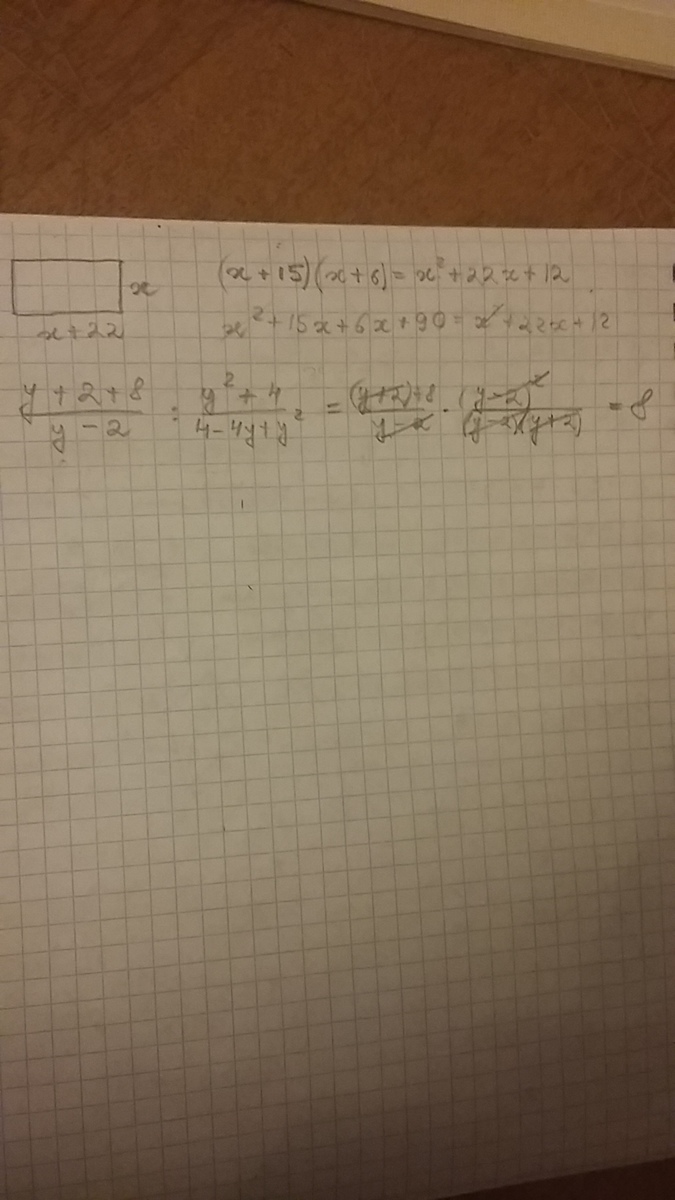 x (x+15)(x+6) = x² + 22x + 12
x+22 x² + 15x + 6x + 90 = x² + 22x + 12
(y + 2 + 8)/(y - 2) : (y² + 4)/(4 - 4y + y²) = ((y+2)+8)/(y-2) · (y-2)²/((y-2)(y+2)) = 8